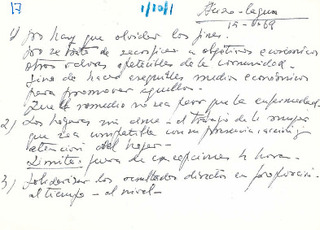 17
1/10/1
15-8-69
1) No hay que olvidar los fines.
No se trata de sacrificar a objetivos económicos
otros valores apetecibles de la comunidad.
Sino de hacer asequibles medios económicos
para promover aquellos.
Que el remedio no sea peor que la enfermedad.
2) Los hogares sin alma - el trabajo de la mujer
que sea compatible con su presencia, acción y
atención del hogar -
Límites, fuera de concepciones 4 horas -
3) Solidarizar los resultados directos en proporción
al tiempo - al nivel -